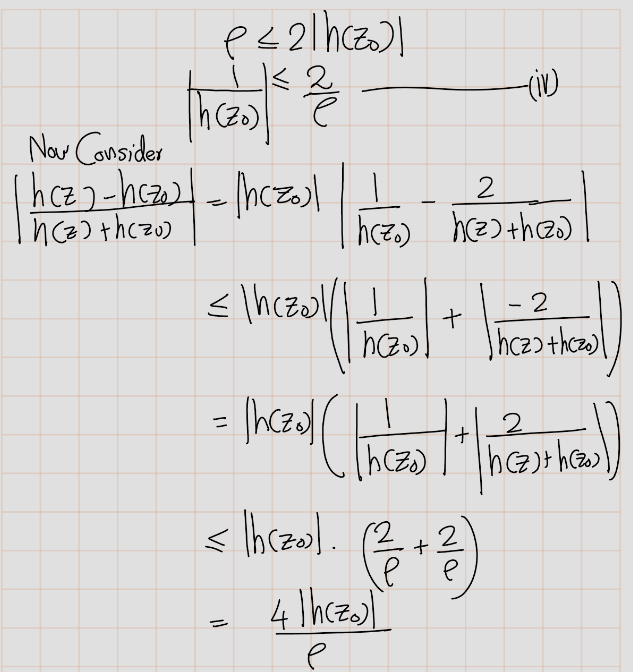 ρ ≤ 2|h(z₀)|
|1/h(z₀)| ≤ 2/ρ ———— (iv)
Now Consider
|(h(z) - h(z₀))/(h(z) + h(z₀))| = |h(z₀)| |1/h(z₀) - 2/(h(z) + h(z₀))|
≤ |h(z₀)| (|1/h(z₀)| + |-2/(h(z) + h(z₀))|)
= |h(z₀)| (|1/h(z₀)| + |2/(h(z) + h(z₀))|)
≤ |h(z₀)| . (2/ρ + 2/ρ)
= 4|h(z₀)|/ρ